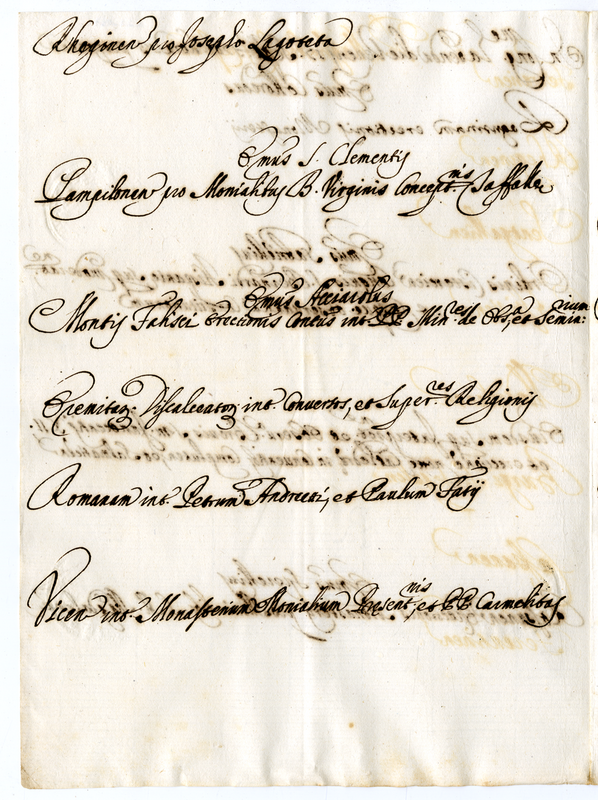 Rheginen pro Josepho Lagoteta
Emus S. Clementis
Pampilonen pro Monialibus B. Virginis Concept.nis Saffalce
Emus Acciaiolus
Montis Falisci Erectionis Concus int. PP. Min.res de Obs.a et Semin:rium
Eremitar. Discalceator int. Conversos, et Super.res Religionis
Romanam int. Petrum Andreetti, et Paulum Fatij
Vicen int. Monasterium Monialium Present.nis, et PP Carmelitas